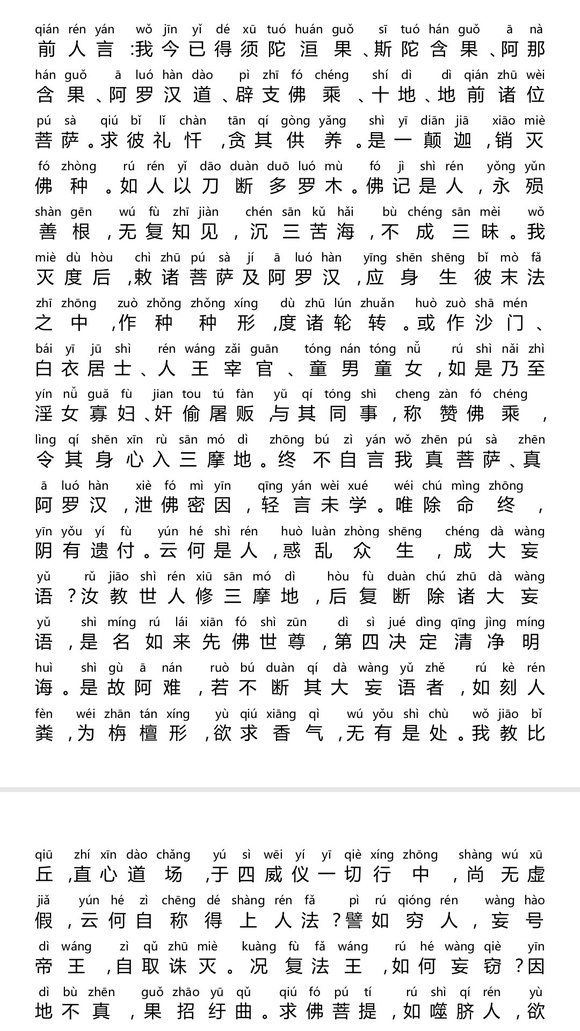 qián rén yán wǒ jīn yǐ dé xū tuó huán guǒ sī tuó hán guǒ ā nà
前人言:我今已得须陀洹果、斯陀含果、阿那
hán guǒ ā luó hàn dào pì zhī fó chéng shí dì dì qián zhū wèi
含果、阿罗汉道、辟支佛乘、十地、地前诸位
pú sà qiú bǐ lǐ chàn tān qí gòng yǎng shì yī diān jiā xiāo miè
菩萨。求彼礼忏,贪其供养。是一颠迦,销灭
fó zhòng rú rén yǐ dāo duàn duō luó mù fó jì shì rén yǒng yǔn
佛种。如人以刀断多罗木。佛记是人,永殒
shàn gēn wú fù zhī jiàn chén sān kǔ hǎi bù chéng sān mèi wǒ
善根,无复知见,沉三苦海,不成三昧。我
miè dù hòu chì zhū pú sà jí ā luó hàn yīng shēn shēng bǐ mò fǎ
灭度后,敕诸菩萨及阿罗汉,应身生彼末法
zhī zhōng zuò zhǒng zhǒng xíng dù zhū lún zhuǎn huò zuò shā mén
之中,作种种形,度诸轮转。或作沙门、
bái yī jū shì rén wáng zǎi guān tóng nán tóng nǚ rú shì nǎi zhì
白衣居士、人王宰官、童男童女,如是乃至
yín nǚ guǎ fù jian tou tú fàn yǔ qí tóng shì cheng zàn fó chéng
淫女寡妇、奸偷屠贩,与其同事,称赞佛乘,
lìng qí shēn xīn rù sān mó dì zhōng bú zì yán wǒ zhēn pú sà zhēn
令其身心入三摩地。终不自言我真菩萨、真
ā luó hàn xiè fó mì yīn qīng yán wèi xué wéi chú mìng zhōng
阿罗汉,泄佛密因,轻言未学。唯除命终,
yīn yǒu yí fù yún hé shì rén huò luàn zhòng shēng chéng dà wàng
阴有遗付。云何是人,惑乱众生,成大妄
yǔ rǔ jiāo shì rén xiū sān mó dì hòu fù duàn chú zhū dà wàng
语?汝教世人修三摩地,后复断除诸大妄
yǔ shì míng rú lái xiān fó shì zūn dì sì jué dìng qīng jìng míng
语,是名如来先佛世尊,第四决定清净明
huì shì gù ā nán ruò bú duàn qí dà wàng yǔ zhě rú kè rén
诲。是故阿难,若不断其大妄语者,如刻人
fèn wéi zhān tán xíng yù qiú xiāng qì wú yǒu shì chù wǒ jiāo bǐ
粪,为栴檀形,欲求香气,无有是处。我教比
qiū zhí xīn dào chǎng yú sì wēi yí yī qiè xíng zhōng shàng wú xū
丘,直心道场,于四威仪一切行中,尚无虚
jiǎ yún hé zì chēng dé shàng rén fǎ pì rú qióng rén wàng hào
假,云何自称得上人法?譬如穷人,妄号
dì wáng zì qǔ zhū miè kuàng fù fǎ wáng rú hé wàng qiè yīn
帝王,自取诛灭。况复法王,如何妄窃?因
dì bù zhēn guǒ zhāo yū qū qiú fó pú tí rú shì qí rén yù
地不真,果招纡曲。求佛菩提,如噬脐人,欲